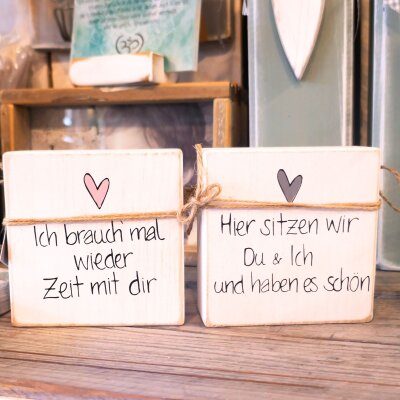 Ich brauch' mal
wieder
Zeit mit dir
Hier sitzen wir
Du & Ich
und haben es schön